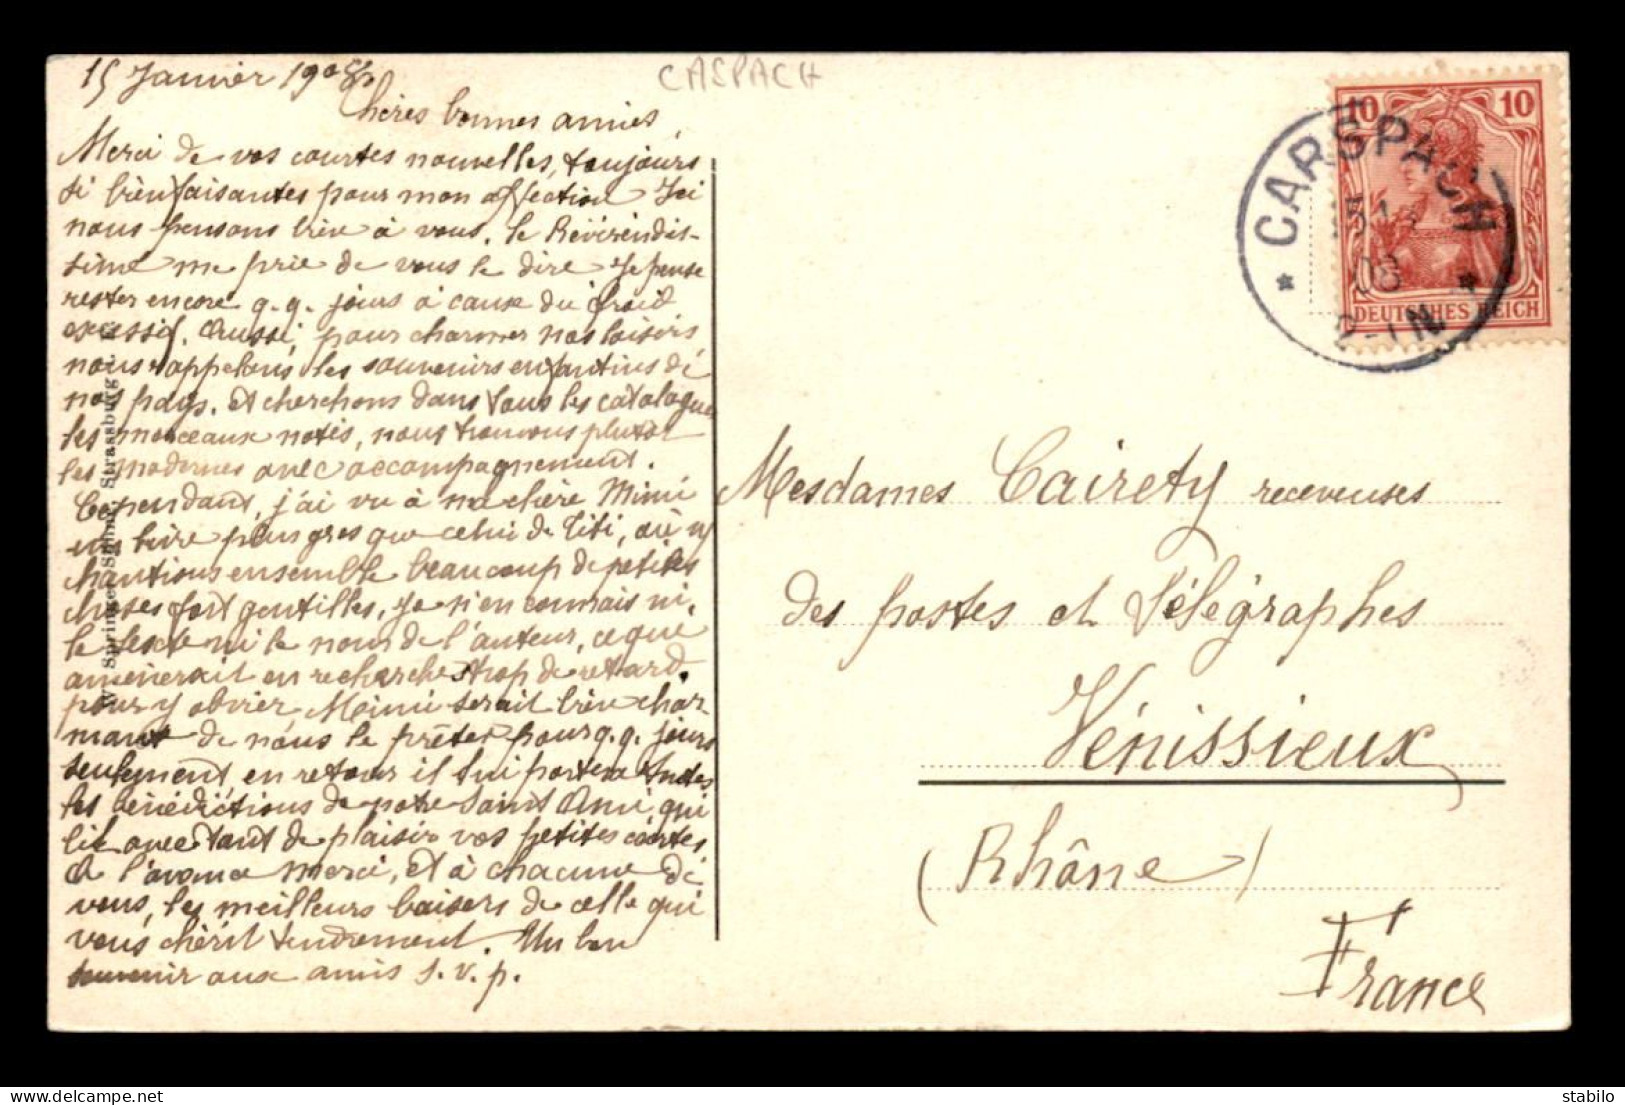 15 Janvier 1908
CASPACH
Chères bonnes amies,
Merci de vos courtes nouvelles, toujours
si bienfaisantes pour mon affection Ici
nous pensons bien à vous. Le Révérendis-
sime me prie de vous le dire Je pense
rester encore q.q. jours à cause du froid
excessif. Aussi, pour charmer nos loisirs
nous rappelons les souvenirs enfantins de
nos pays. Et cherchons dans tous les catalogues
les morceaux notés, nous trouvons plutôt
les modernes avec accompagnement.
Cependant, j'ai vu à ma chère Mimi
un livre plus gros que celui de Titi, où n/
chantions ensemble beaucoup de petites
choses fort gentilles, je n'en connais ni
le texte ni le nom de l'auteur, ce qui
amènerait en recherches trop de retard.
pour y obvier Mimi serait bien char-
mante de nous le prêter pour q.q. jours
seulement, en retour il lui portera toutes
les bénédictions de notre Saint Ami qui
lit avec tant de plaisir vos petites cartes.
A l'avance merci, et à chacune de
vous, les meilleurs baisers de celle qui
vous chérit tendrement. Un bon
souvenir aux amis s.v.p.
W. Springer Sohne, Strassburg
CARSPACH
15.1.
08
2-3N
10 10
DEUTSCHES REICH
Mesdames Cairety receveuses
des postes et Télégraphes
Vénissieux
(Rhône)
France
stabilo
www.delcampe.net